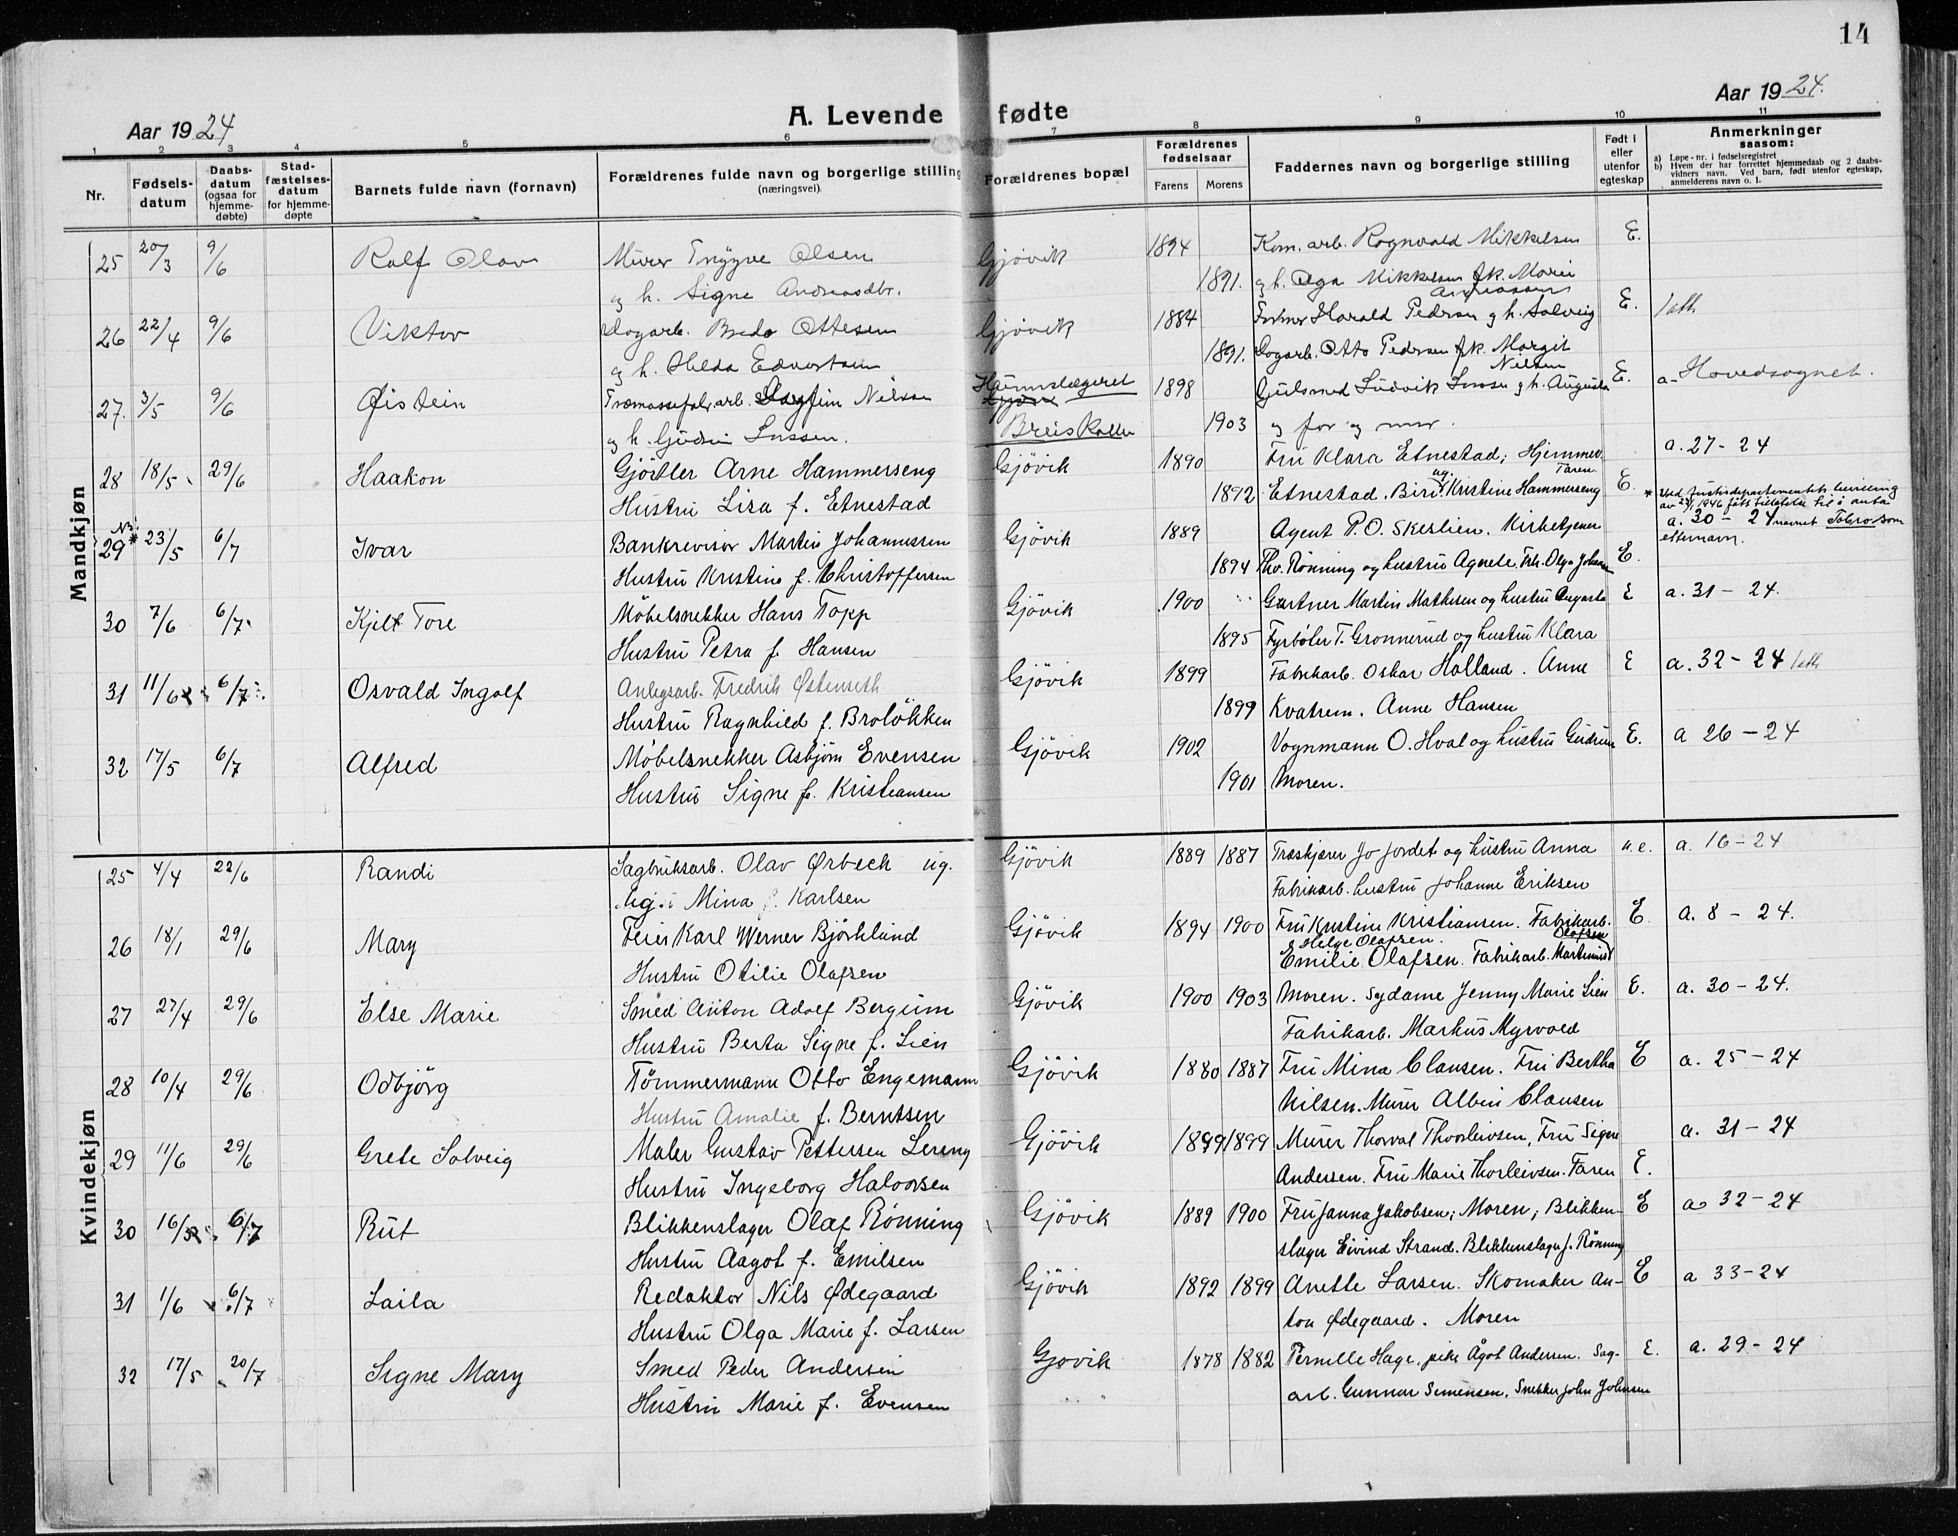 14
Aar 1924
A. Levende fødte
Aar 1924.
1 2 3 4 5 6 7 8 9 10 11
Nr.
Fødselsdatum
Daabsdatum (ogsaa for hjemmedøbte)
Stadfæstelsesdatum for hjemmedøpte
Barnets fulde navn (fornavn)
Forældrenes fulde navn og borgerlige stilling (næringsvei).
Forældrenes bopæl
Forældrenes fødselsaar
Farens Morens
Faddernes navn og borgerlige stilling
Født i eller utenfor egteskap
Anmerkninger saasom:
a) Løpe-nr. i fødselsregistret
b) Hvem der har forrettet hjemmedaab og 2 daabsvidners navn. Ved barn, født utenfor egteskap, anmelderens navn o. l.
Mandkjøn
25 20/3 9/6 Rolf Olav Murer Trygve Olsen Gjøvik 1894 Kom. arb. Rognvald Mikkelsen E.
og h. Signe Andreasdtr. 1891. og h. Olga Mikkelsen fk. Marie Andreassen
26 22/4 9/6 Viktor Dagarb. Bredo Ottesen Gjøvik 1884 Harald Pedersen og h. Solveig E. 1 att
og h. Hilda Edvartsen 1891. Dagarb. Otto Pedersen fk. Margit Nilsen
27. 3/5 9/6 Øistein Træmassefabr. arb. Dagfin Nilsen 1898 Gulsmed Ludvik Larsen og h. Augusta E. a- Hovedsognet.
og h. Gudrun Larssen. Breiskallen 1903 og far og mor.
28 18/5 29/6 Haakon Gjörtler Arne Hammerseng Gjøvik 1890 Fru Klara Etnestad; Hjemmev. Faren. a. 27-24
Hustru Lisa f. Etnestad 1892 Etnestad. Biri. ug. Kristine Hammerseng E.
* Ved Justisdepartementets bevilling av 1946 fått tillatelse til å anta navnet Tobro som etternavn.
29* 23/5 6/7 Ivar Bankrevisor Martin Johannessen Gjøvik 1889 Agent P.O. Skeslien. Kirketjener a. 30-24
Hustru Kristine f. Christoffersen 1894 Thv. Rønning og hustru Agnete. Frk. Olga Johansen E.
30 7/6 6/7 Kjell Tore Møbelsnekker Hans Topp Gjøvik 1900 Gartner Martin Mathisen og hustru Augusta E a. 31-24.
Hustru Petra f. Hansen 1895 Fyrbøter T. Grønnerud og hustru Klara
31 11/6 6/7 Osvald Ingolf Anlegsarb. Fredrik Østenseth Gjøvik 1899 Fabrikarb. Oskar Holland. Anne E a. 32-24 1 att
Hustru Ragnhild f. Braløkken 1899 Kvatrem. Anne Hansen
32 17/5 6/7 Alfred Møbelsnekker Asbjørn Evensen Gjøvik 1902 Vognmann O. Hval og hustru Gudrun E. a 26-24
Hustru Signe f. Kristiansen 1901 Moren.
Kvindekjøn
25 4/4 22/6 Randi Sagbruksarb. Olav Ørbeck ug. Gjøvik 1889 1887 Træskjærer Jo Jordet og hustru Anna u.e. a. 16-24
Pig. Mina Karlsen Fabrikarb. hustru Johanne Eriksen
26 18/1 29/6 Mary Feier Karl Werner Bjørklund Gjøvik 1894 1900 Fru Kristine Kristiansen. Fabrikarb. Helge Olafsen. E. a. 8-24.
Hustru Otilie Olafsen Emilie Olafsen. Fabrikarb. Martinius Olafsen
27 27/4 29/6 Else Marie Smed Anton Adolf Bergum Gjøvik 1900 1903 Moren. Sydame Jenny Marie Lien E. a. 30-24.
Hustru Berta Signe f. Lien Fabrikarb. Markus Myrvold
28 10/4 29/6 Odbjörg Tømmermann Otto Engemann Gjøvik 1880 1887 Fru Mina Clausen. Fru Bertha E a. 25-24
Hustru Amalie f. Berntsen Nilsen. Murer Albin Clausen
29 11/6 29/6 Grete Solveig Maler Gustav Pettersen Lereng Gjøvik 1899 1899 Murer Thorval Thorleivsen, Fru Signe a. 31-24
Hustru Ingeborg Halvorsen Andersen. Fru Marie Thorleivsen. Faren E.
30 16/5 6/7 Rut Blikkenslager Olaf Rønning Gjøvik 1889 1900 Fru Janna Jakobsen; Moren; Blikken- E a. 32-24
Hustru Aagot f. Emilsen slager Eivind Strand. Blikkenslager J. Rønning
31 1/6 6/7 Laila Redaktør Nils Ødegaard Gjøvik 1892 1899 Anette Larsen. Skomaker An- E a 33-24
Hustru Olga Marie f. Larsen ton Ødegaard. Moren
32 17/5 20/7 Signe Mary Smed Peder Andersen Gjøvik 1878 1882 Pernille Hage, pike Ågot Andersen. Sag- E. a. 29-24
Hustru Marie f. Evensen arb. Gunnar Simensen, Snekker John Johnsen